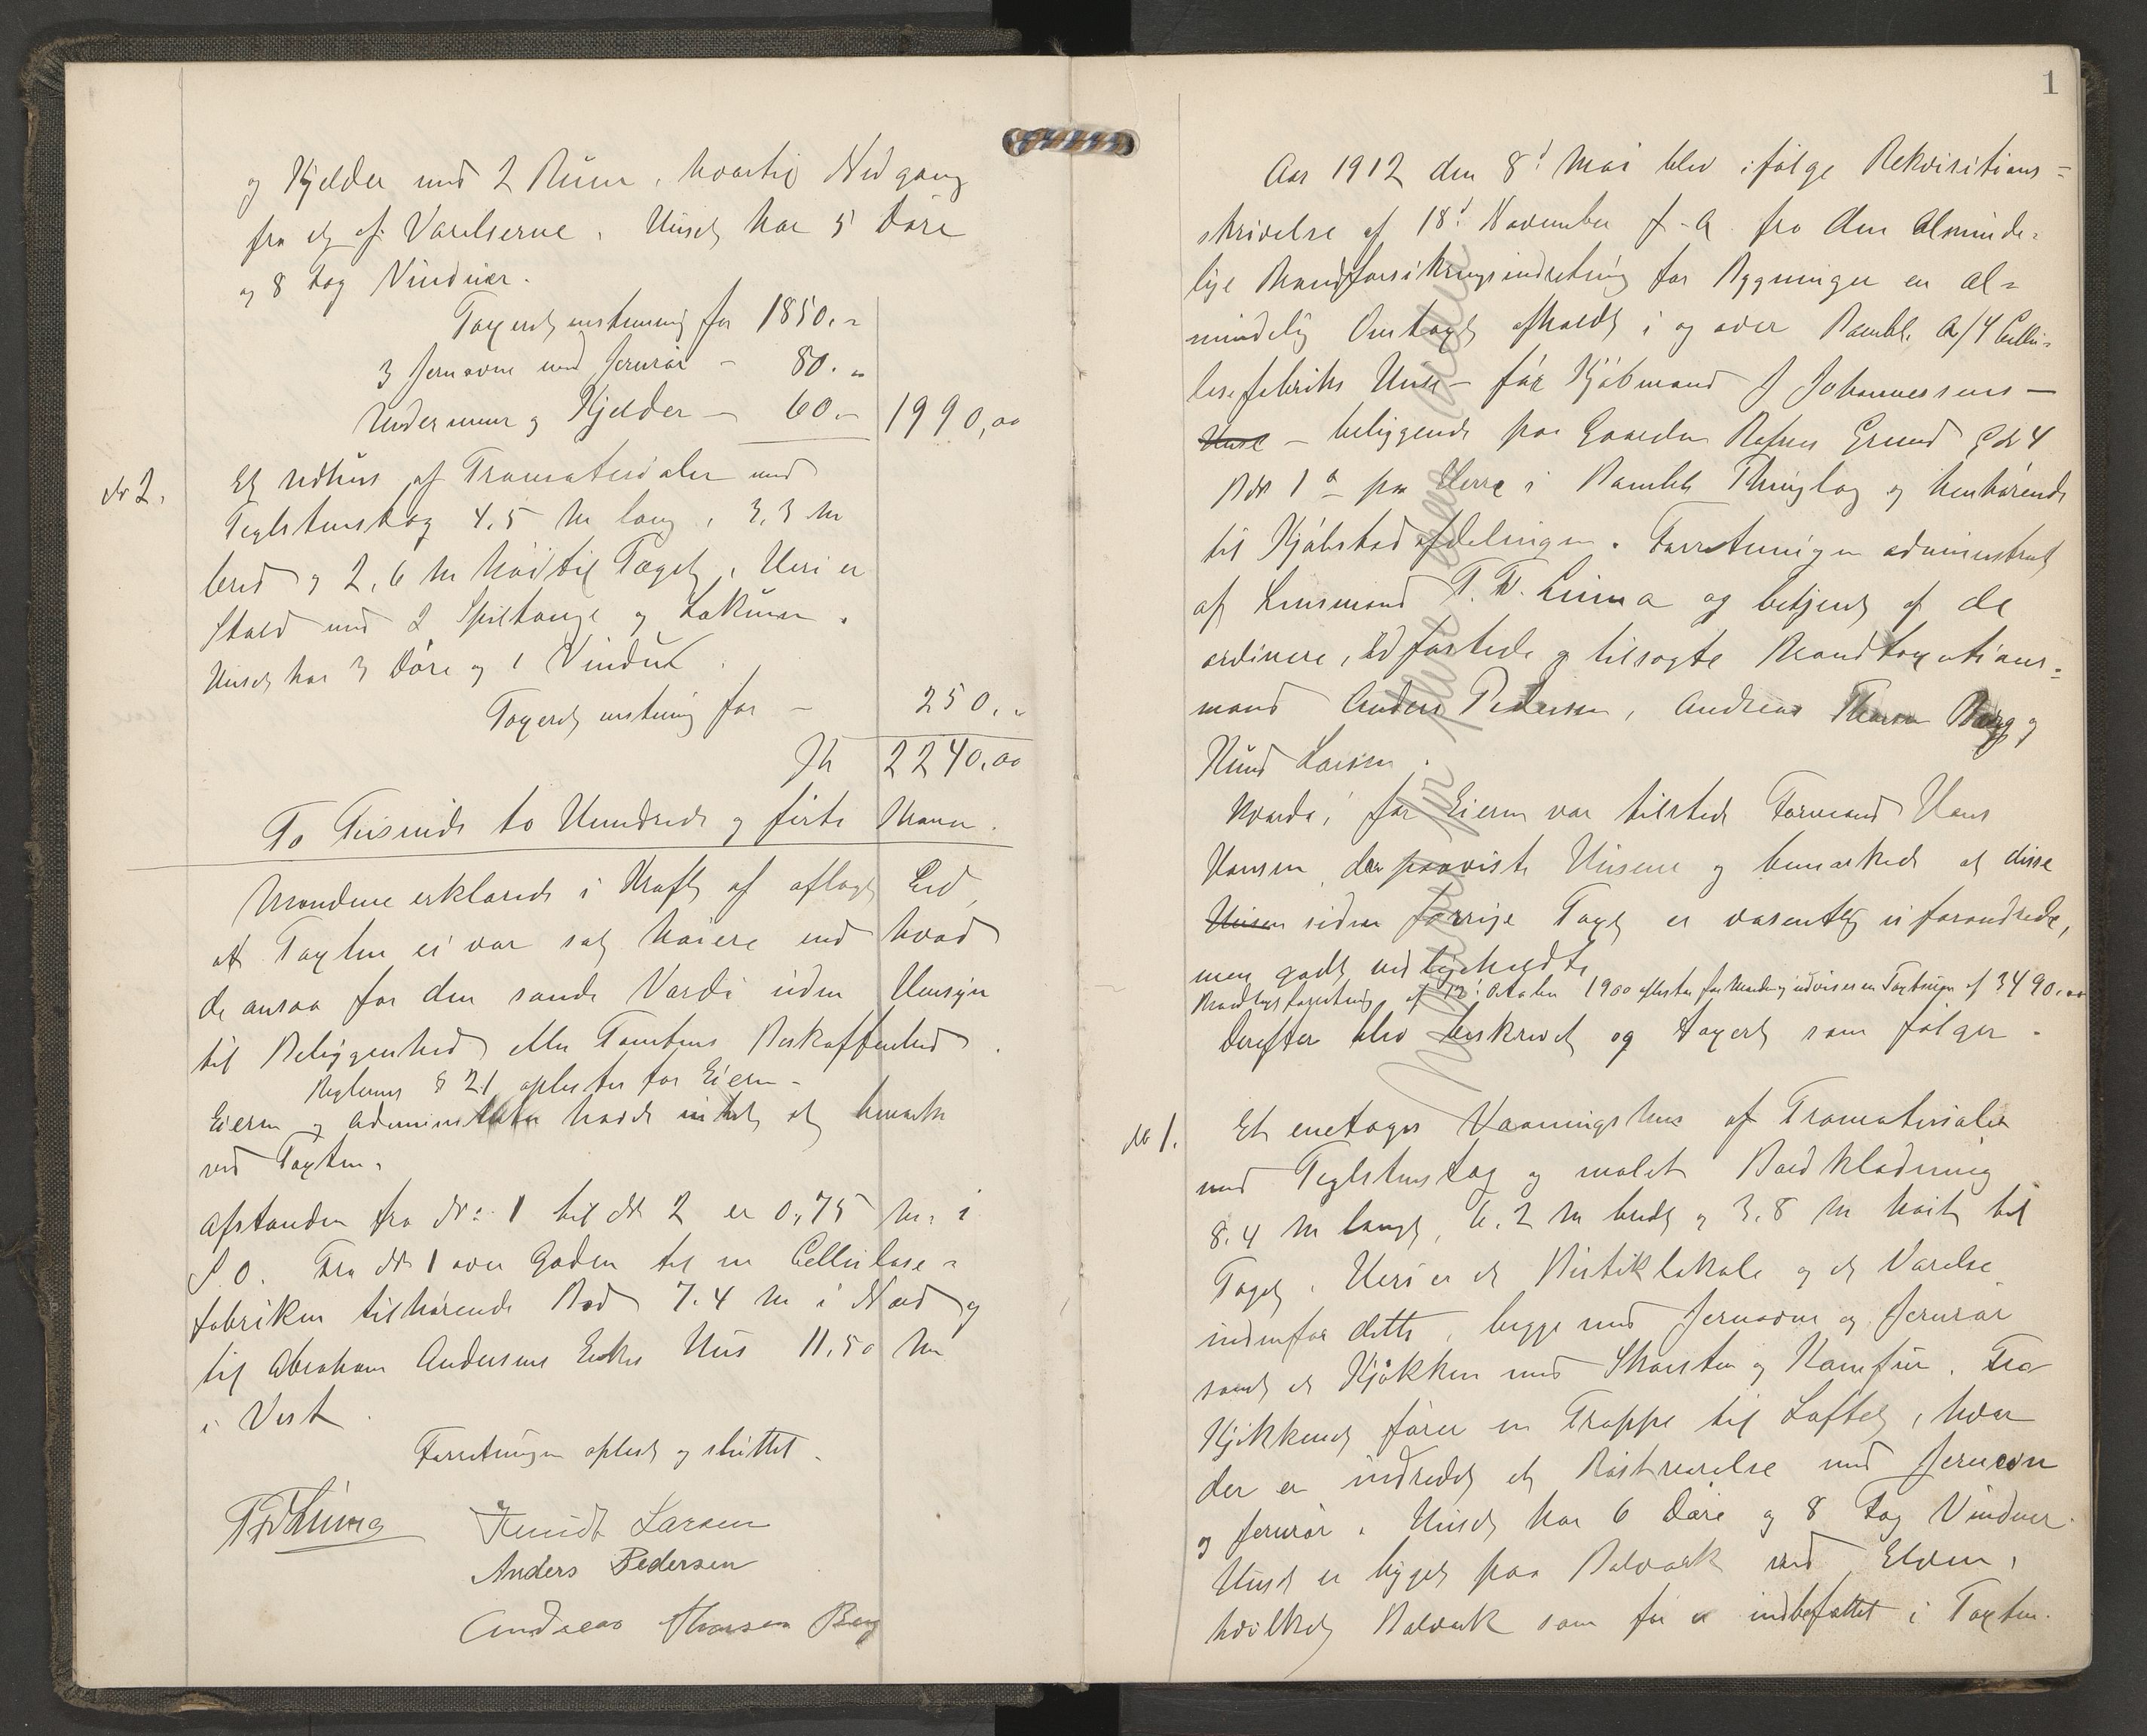 og Kjelder med 2 Rum, hvortil Nedgang
fra et af Værelserne. Huset har 5 Døre
og 8 Fag Vinduer.
Taxeret enstemmig for 1850.-
3 Jernovne med Jernrør - 80.-
Undermur og Kjelder - 60.- 1990,00
No 2. Et Udhus af Træmaterialer med
Teglstenstag 4,5 m lang, 3,3 m
bred og 2,6 m høi til Taget. Heri er
Stald med 2 Spiltauge og Lokum.
Huset har 3 Døre og 1 Vindue.
Taxeret enstemmig for - 250.-
Kr 2240,00
To Tusinde to Hundrede og førti Kroner.
Mændene erklærede i Kraft af aflagt Eed,
at Taxten ei var sat høiere end hvad
de ansaa for den sande Værdi uden Hensyn
til Beliggenhed eller Tomtens Beskaffenhed.
Reglernes § 21 oplæstes for Eieren -
Eieren og administrator havde intet at bemærke
ved Taxten.
Afstanden fra No 1 til No 2 er 0,75 m. i
S.O. Fra No 1 over Gaden til en Cellulose-
fabriken tilhørende Bod 7.4 m i Nord og
til Abraham Andersens Enkes Hus 11,50 m
i Vest.
Forretningen oplæst og sluttet.
T. F. Liima Knudt Larsen
Anders Pedersen
Andreas Thorsen Berg
1
Aar 1912 den 8! Mai blev ifølge Rekvisitions-
skrivelse af 18! November f. A. fra Den Alminde-
lige Brandforsikringsindretning for Bygninger en al-
mindelig Omtaxt afholdt i og over Bamble A/S Cellu-
losefabriks Huse - før Kjøbmand J Johannessens -
Huse - beliggende paa Gaarden Rafnes Grund G No 4
B No 1 a paa Herre i Bamble Thinglag og henhørende
til Kjøbstadafdelingen. Forretningen administreret
af Lensmand T. F. Liima og betjent af de
ordinære, edfæstede og tilsagte Brandtaxations-
mænd Anders Pedersen, Andreas Thorsen Berg og
Knud Larsen.
Hvorda! for Eieren var tilstede Formand Hans
Hansen der paaviste Husene og bemærkede at disse
Husene siden forrige Taxt er væsentlig uforandrede,
men godt vedligeholdte
Brandtaxtforretning af 12! Oktober 1900 oplæstes for Mænd og udviser en Taxtsum af 3490.00
Derefter blev beskrevet og taxeret som følger.
No 1. Et enetages Vaaningshus af Træmaterialer
med Teglstenstag og malet Bordklædning
8.4 m langt, 6.2 m bredt og 3.8 m høit til
Taget. Heri er et Butiklokale og et Værelse
indenfor dette, begge med Jernovne og Jernrør
samt et Kjøkken med Skorsten og Komfur. Fra
Kjøkkenet fører en Trappe til Loftet, hvor
der er indredet et Kvistværelse med Jernovn
og Jernrør. Huset har 6 Døre og 8 Fag Vinduer.
Huset er bygget paa Bolværk ved Elven,
hvilket Bolværk som før er indbefattet i Taxten.